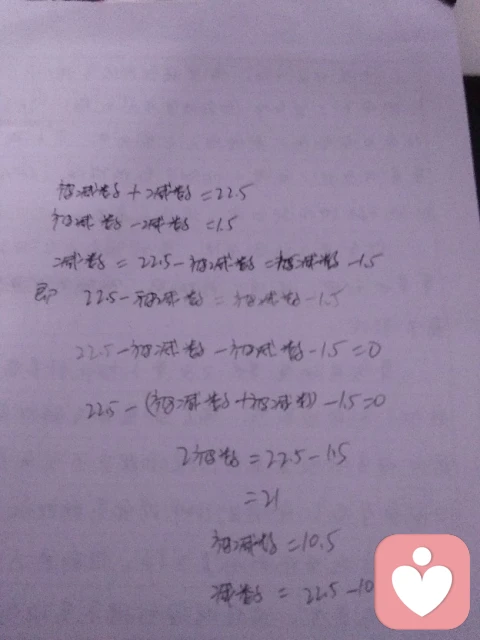 被减数+减数=22.5
被减数-减数=1.5
减数=22.5-被减数=被减数-1.5
即 22.5-被减数=被减数-1.5
22.5-被减数-被减数-1.5=0
22.5-(被减数+被减数)-1.5=0
2被数=22.5-1.5
=21
被减数=10.5
减数=22.5-10